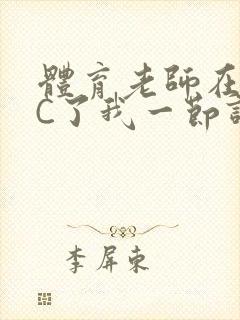 體育老師在
C了我一節
李屏東